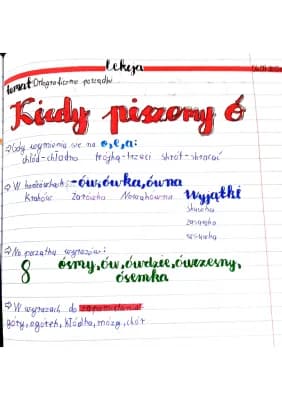 Lekcja
Temat: Ortograficzne porządki
Kiedy piszemy ó
⇒Gdy wymienia się na o,e,a:
chłód-chłodno trójka-trzeci skrót-skracać
⇒W końcówkach: -ów,ówka,ówna
Wyjątki
Kraków Żarówka Nowakówna
skuwka
zasuwka
⇒Na początku wyrazów:
8 ósmy,ów,ówdzie,ówczesny,
ósemka
⇒W wyrazach do zapamiętania:
góry,ogórek,kłódka,mózg,chór